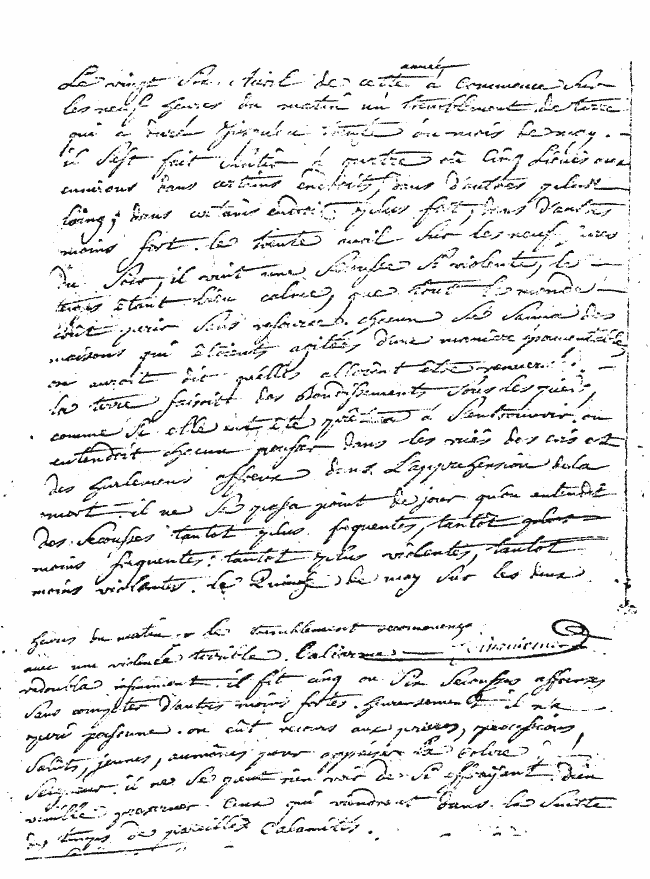 année
Le vingt six Avril de cette a commencé sur
les neuf heures du matin un tremblement de terre
qui a duré jusqu'a au mois de may. –
il s'est fait sentir a quatre ou cinq lieues aux
environs dans certains endroits, dans d'autres plus
loing; dans certains endroit plus fort, dans d'autres
moins fort. le trente avril sur les neuf heures
du soir, il vint une secousse si violente, le –
tems étant bien calme, que tout le monde –
crût perir sans resource. chacun se sauva des
maisons qui étoient agitées d'une maniere épouventable
on auroit dit qu'elles alloient etre renver
la terre faisoit des bondissements sous les pieds,
comme si elle eut été prête a s'entrouvrir, on
entendoit chacun pousser dans les rües des cris et
des hurlemens affreux dans l'apprehension de la
mort. il ne se passa point de jour qu'on entendit
des secousses tantot plus frequentes, tantôt plus
moins frequentes: tantot plus violentes, tantot
moins violentes. le Quinze de may sur les deux
heures du matin le tremblement recommença
avec une violence terrible,
redoubla infiniment. il fit cinq ou six secousses affreuses
sans compter d'autres moins fortes. heureusement il n'a
peri personne. on eût recours aux prieres, processions,
saluts, jeunes, aumônes pour appaiser la colere
Seigneur. il ne se peut rien voir de si effrayant. dieu
veuille preserver ceux qui viendront dans la suitte
des temps de pareilles calamités.